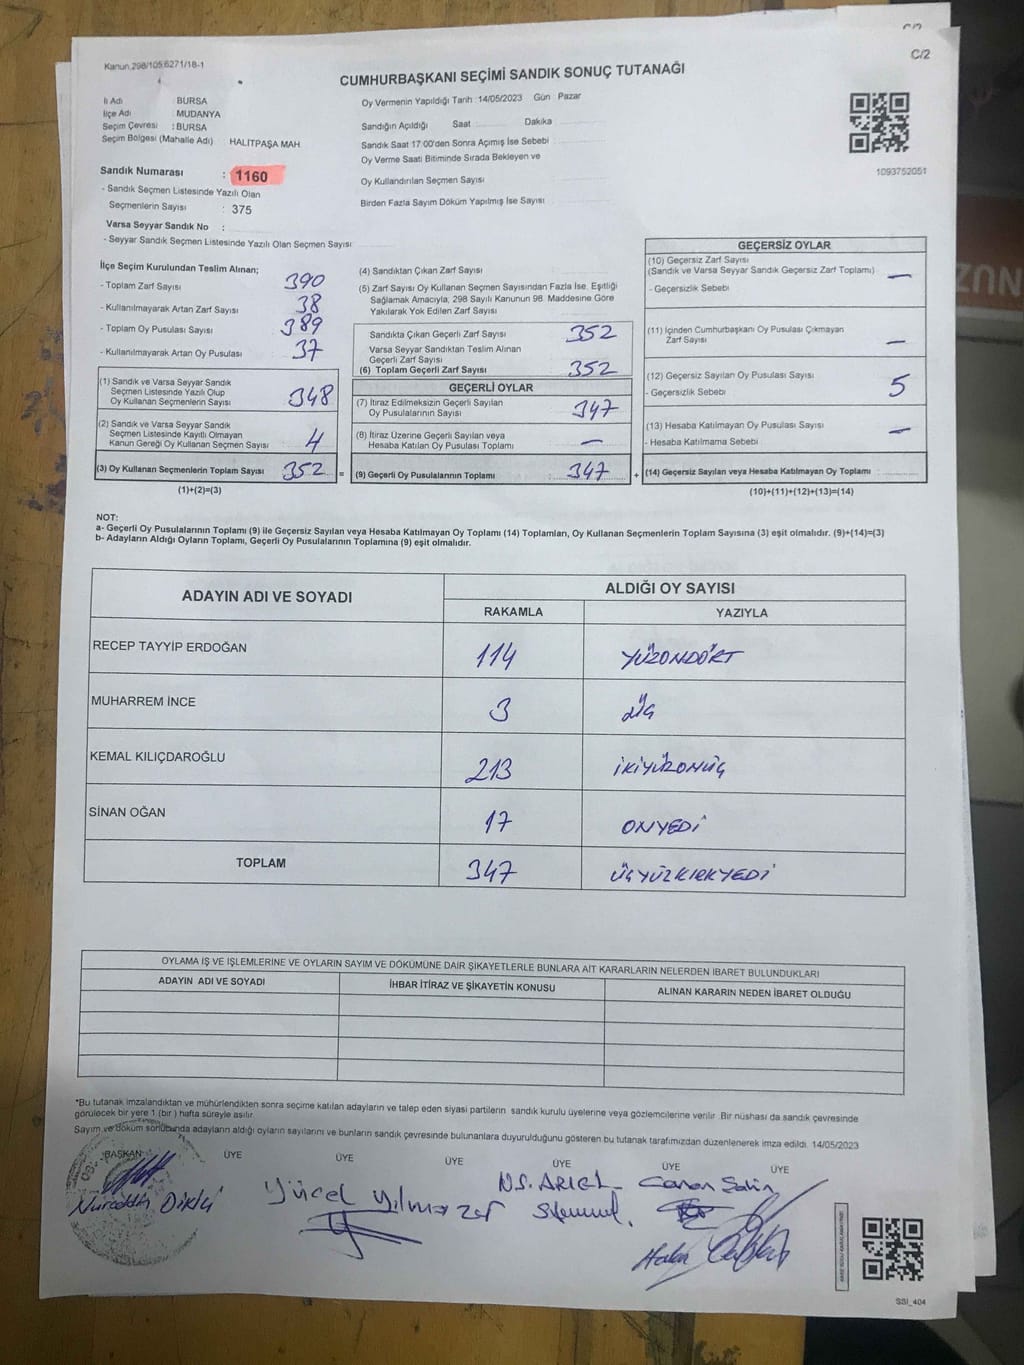 C/2
C/2
Kanun.298/105,6271/18-1
CUMHURBAŞKANI SEÇİMİ SANDIK SONUÇ TUTANAĞI
İl Adı : BURSA
İlçe Adı : MUDANYA
Seçim Çevresi : BURSA
Seçim Bölgesi (Mahalle Adı) HALİTPAŞA MAH
Oy Vermenin Yapıldığı Tarih : 14/05/2023 Gün Pazar
Sandığın Açıldığı Saat Dakika
Sandık Saat 17:00'den Sonra Açımış İse Sebebi
Oy Verme Saati Bitiminde Sırada Bekleyen ve
Oy Kullandırılan Seçmen Sayısı
Birden Fazla Sayım Döküm Yapılmış İse Sayısı
1093752051
Sandık Numarası : 1160
- Sandık Seçmen Listesinde Yazılı Olan
Seçmenlerin Sayısı : 375
Varsa Seyyar Sandık No :
- Seyyar Sandık Seçmen Listesinde Yazılı Olan Seçmen Sayısı
İlçe Seçim Kurulundan Teslim Alınan;
- Toplam Zarf Sayısı 390
- Kullanılmayarak Artan Zarf Sayısı 38
- Toplam Oy Pusulası Sayısı 389
- Kullanılmayarak Artan Oy Pusulası 37
(1) Sandık ve Varsa Seyyar Sandık
Seçmen Listesinde Yazılı Olup
Oy Kullanan Seçmenlerin Sayısı 348
(2) Sandık ve Varsa Seyyar Sandık
Seçmen Listesinde Kayıtlı Olmayan
Kanun Gereği Oy Kullanan Seçmen Sayısı 4
(3) Oy Kullanan Seçmenlerin Toplam Sayısı 352 =
(1)+(2)=(3)
(4) Sandıktan Çıkan Zarf Sayısı
(5) Zarf Sayısı Oy Kullanan Seçmen Sayısından Fazla İse, Eşitliği
Sağlamak Amacıyla, 298 Sayılı Kanunun 98. Maddesine Göre
Yakılarak Yok Edilen Zarf Sayısı
Sandıkta Çıkan Geçerli Zarf Sayısı 352
Varsa Seyyar Sandıktan Teslim Alınan
Geçerli Zarf Sayısı
(6) Toplam Geçerli Zarf Sayısı 352
GEÇERLİ OYLAR
(7) İtiraz Edilmeksizin Geçerli Sayılan
Oy Pusulalarının Sayısı 347
(8) İtiraz Üzerine Geçerli Sayılan veya
Hesaba Katılan Oy Pusulası Toplamı —
(9) Geçerli Oy Pusulalarının Toplamı : 347 +
GEÇERSİZ OYLAR
(10) Geçersiz Zarf Sayısı
(Sandık ve Varsa Seyyar Sandık Geçersiz Zarf Toplamı) —
- Geçersizlik Sebebi
(11) İçinden Cumhurbaşkanı Oy Pusulası Çıkmayan
Zarf Sayısı —
(12) Geçersiz Sayılan Oy Pusulası Sayısı 5
- Geçersizlik Sebebi
(13) Hesaba Katılmayan Oy Pusulası Sayısı —
- Hesaba Katılmama Sebebi
(14) Geçersiz Sayılan veya Hesaba Katılmayan Oy Toplamı :
(10)+(11)+(12)+(13)=(14)
NOT:
a- Geçerli Oy Pusulalarının Toplamı (9) ile Geçersiz Sayılan veya Hesaba Katılmayan Oy Toplamı (14) Toplamları, Oy Kullanan Seçmenlerin Toplam Sayısına (3) eşit olmalıdır. (9)+(14)=(3)
b- Adayların Aldığı Oyların Toplamı, Geçerli Oy Pusulalarının Toplamına (9) eşit olmalıdır.
ADAYIN ADI VE SOYADI ALDIĞI OY SAYISI
RAKAMLA YAZIYLA
RECEP TAYYİP ERDOĞAN 114 YÜZONDÖRT
MUHARREM İNCE 3 ÜÇ
KEMAL KILIÇDAROĞLU 213 İKİYÜZONÜÇ
SİNAN OĞAN 17 ONYEDİ
TOPLAM 347 ÜÇYÜZKIRKYEDİ
OYLAMA İŞ VE İŞLEMLERİNE VE OYLARIN SAYIM VE DÖKÜMÜNE DAİR ŞİKAYETLERLE BUNLARA AİT KARARLARIN NELERDEN İBARET BULUNDUKLARI
ADAYIN ADI VE SOYADI İHBAR İTİRAZ VE ŞİKAYETİN KONUSU ALINAN KARARIN NEDEN İBARET OLDUĞU
*Bu tutanak imzalandıktan ve mühürlendikten sonra seçime katılan adayların ve talep eden siyasi partilerin sandık kurulu üyelerine veya gözlemcilerine verilir. Bir nüshası da sandık çevresinde
görülecek bir yere 1 (bir) hafta süreyle asılır.
Sayım ve döküm sonucunda adayların aldığı oyların sayılarını ve bunların sandık çevresinde bulunanlara duyurulduğunu gösteren bu tutanak tarafımızdan düzenlenerek imza edildi. 14/05/2023
BAŞKAN ÜYE ÜYE ÜYE ÜYE ÜYE ÜYE
Nureddin Dikici
Yücel Yılmazer
Canan Şahin
SSI_404